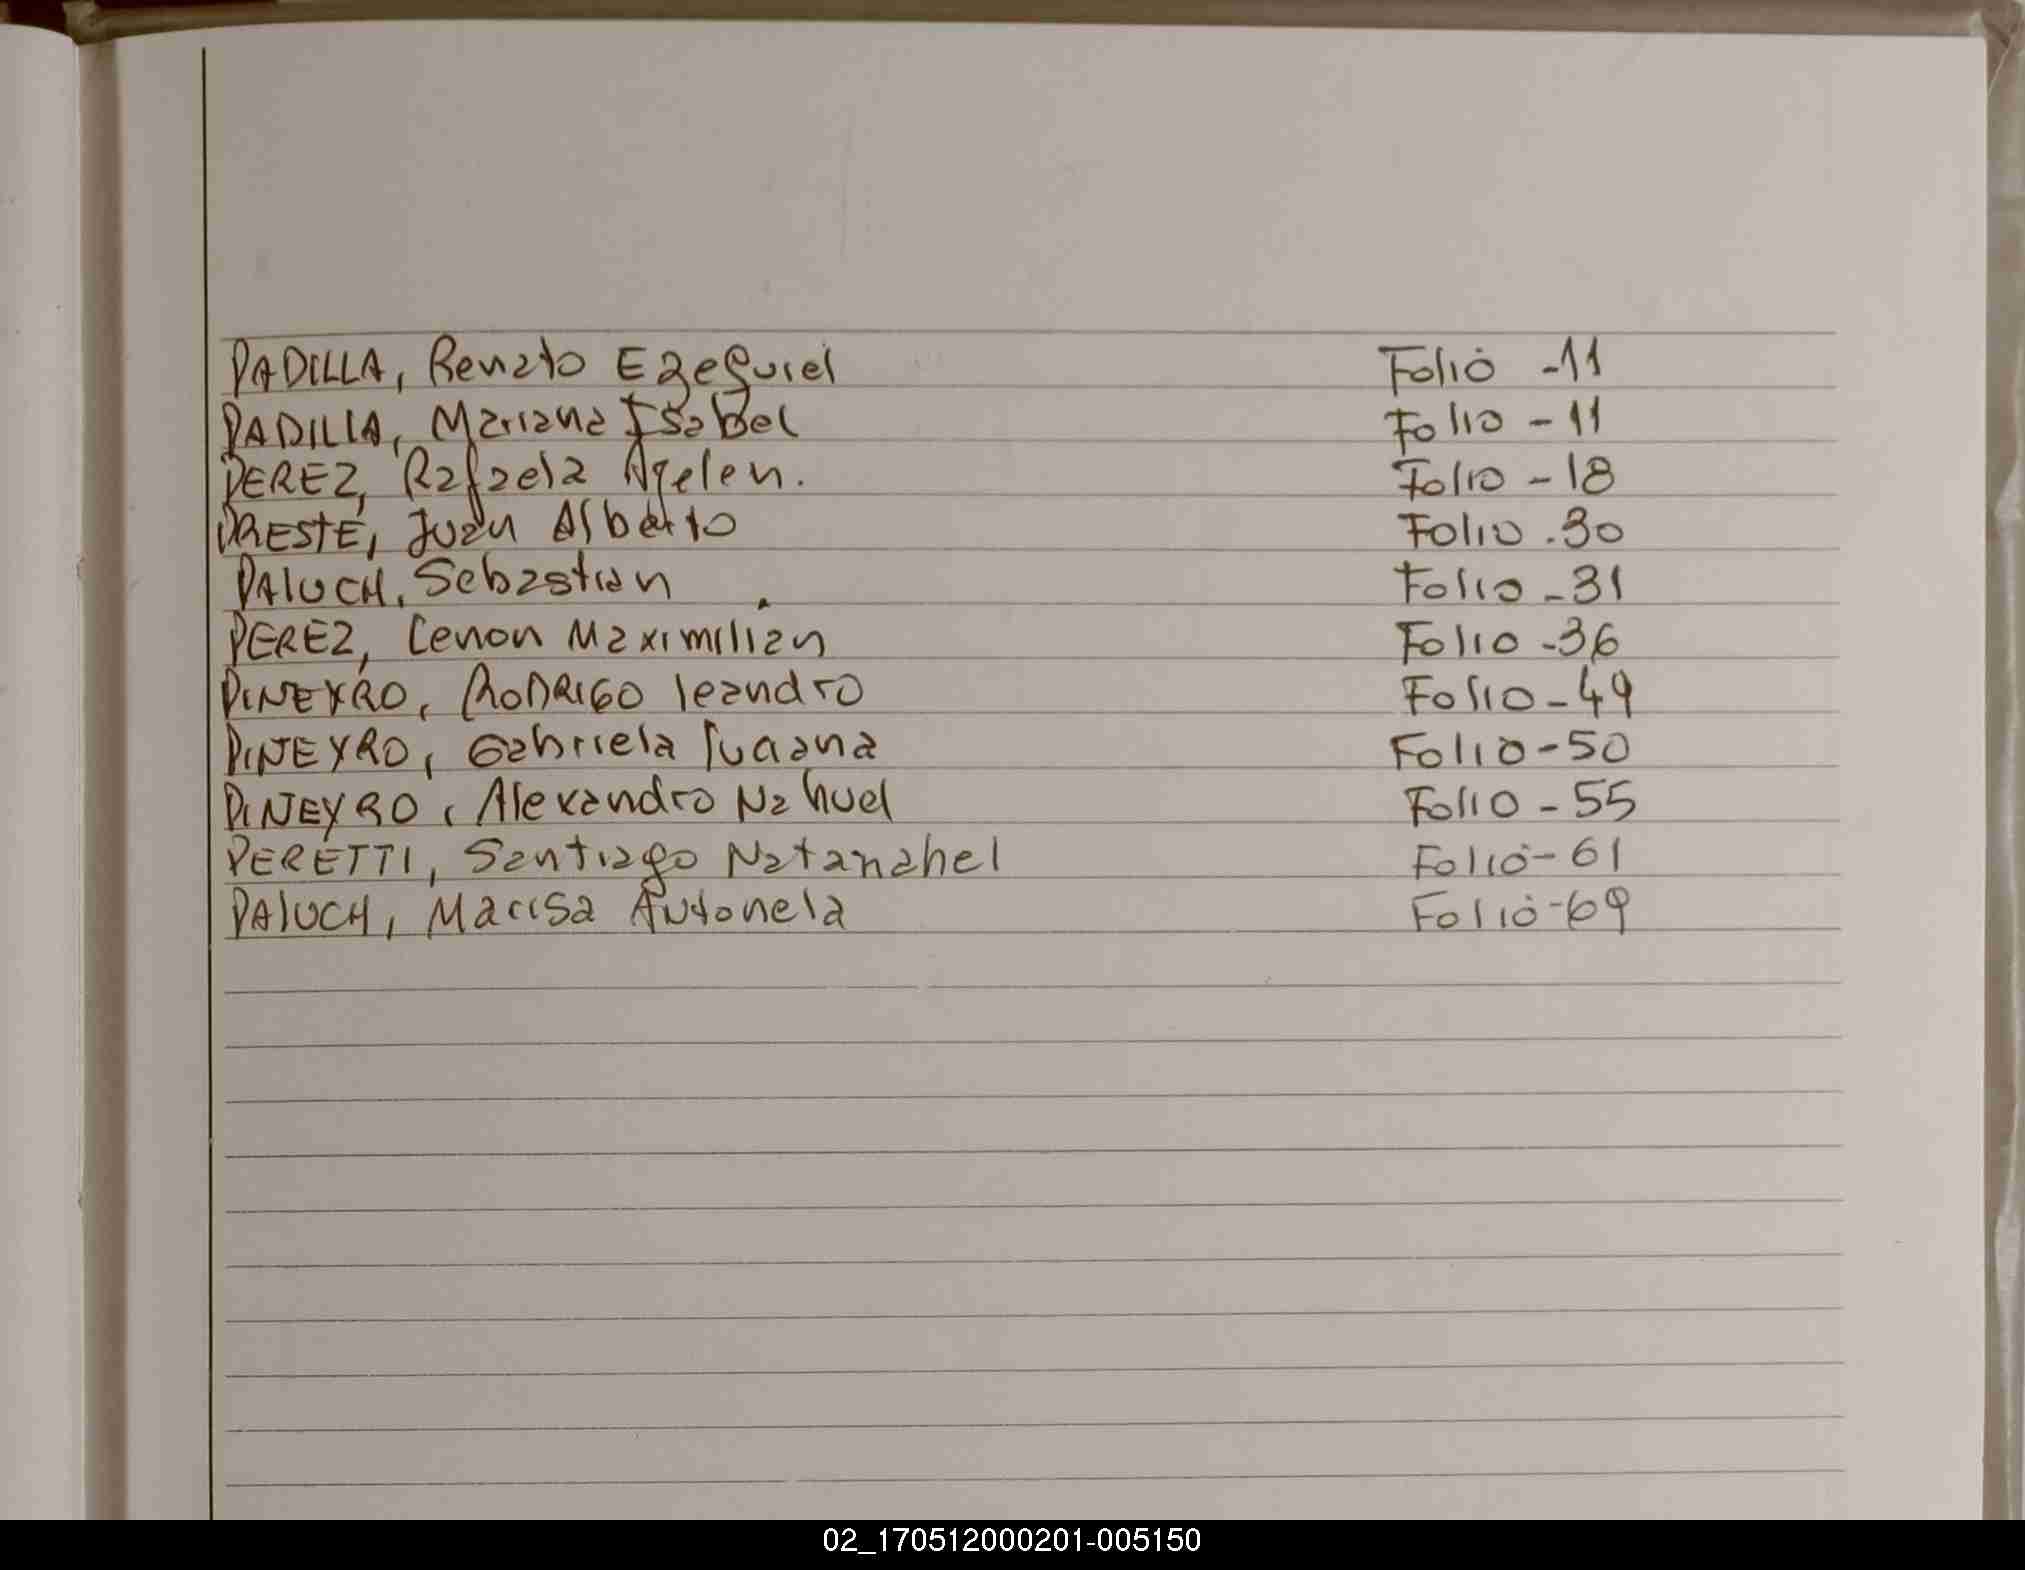 PADILLA, Renato Ezequiel Folio -11
PADILLA, Mariana Isabel Folio - 11
PEREZ, Rafaela Ayelen. Folio - 18
PRESTE, Juan Alberto Folio . 30
PALUCH, Sebastian . Folio - 31
PEREZ, Lenon Maximilian Folio - 36
PINEYRO, RODRIGO leandro Folio - 49
PINEYRO, Gabriela Folio - 50
PINEYRO, Alexandro Nahuel Folio - 55
PERETTI, Santiago Natanahel Folio - 61
PALUCH, Marisa Antonela Folio - 69
02_170512000201-005150